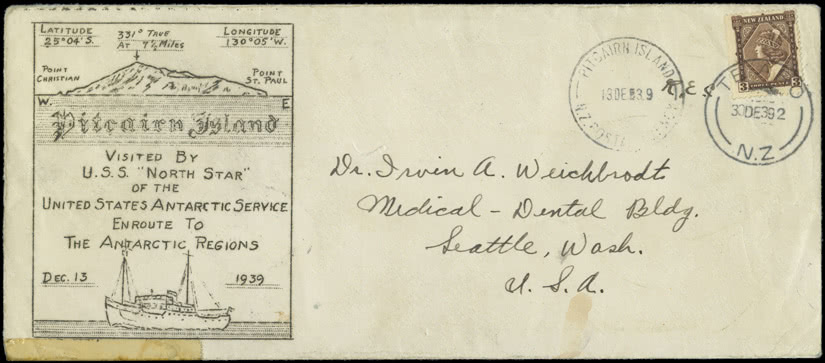 LATITUDE
25°04'S.
331° TRUE
AT 7½ MILES
LONGITUDE
130°05'W.
POINT
CHRISTIAN
POINT
ST. PAUL
W.
E
Pitcairn Island
VISITED BY
U.S.S. "NORTH STAR"
OF THE
UNITED STATES ANTARCTIC SERVICE
ENROUTE TO
THE ANTARCTIC REGIONS
DEC. 13
1939
PITCAIRN ISLAND
13DE39
N.Z. POSTAL AGENCY
NEW ZEALAND
3 3
30DE39 2
N.Z
Dr. Irvin A. Weichbrodt
Medical - Dental Bldg.
Seattle, Wash.
U. S. A.